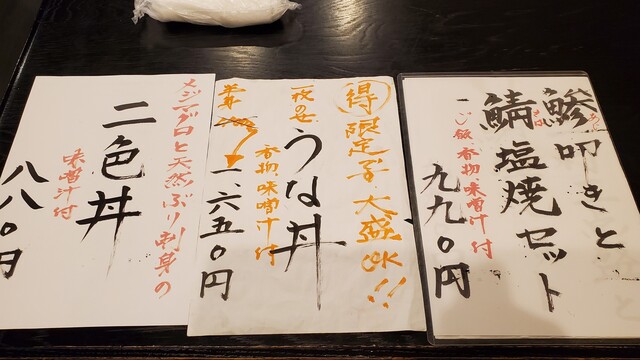 鯵叩きと
あじ
鯖塩焼セット
さば
ご飯香物味噌汁付
九九〇円
得限定予大盛OK!!
うな丼
香物味噌汁付
一、六五〇円
メジマグロと天然ぶり刺身の
二色丼
味噌汁付
八八〇円